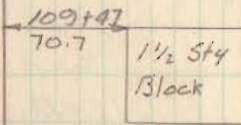 109+47
70.7
1½ Sty
Block